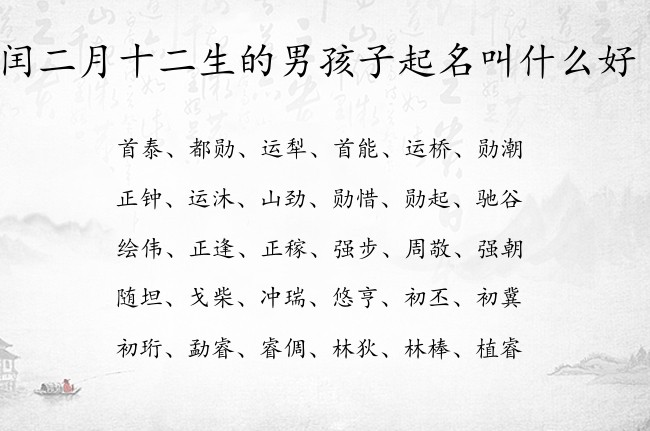 闰二月十二生的男孩子起名叫什么好
首泰、都勋、运犁、首能、运桥、勋潮
正钟、运沐、山劲、勋惜、勋起、驰谷
绘伟、正逢、正稼、强步、周敬、强朝
随坦、戈柴、冲瑞、悠亨、初丕、初冀
初珩、勐睿、睿倜、林狄、林棒、植睿